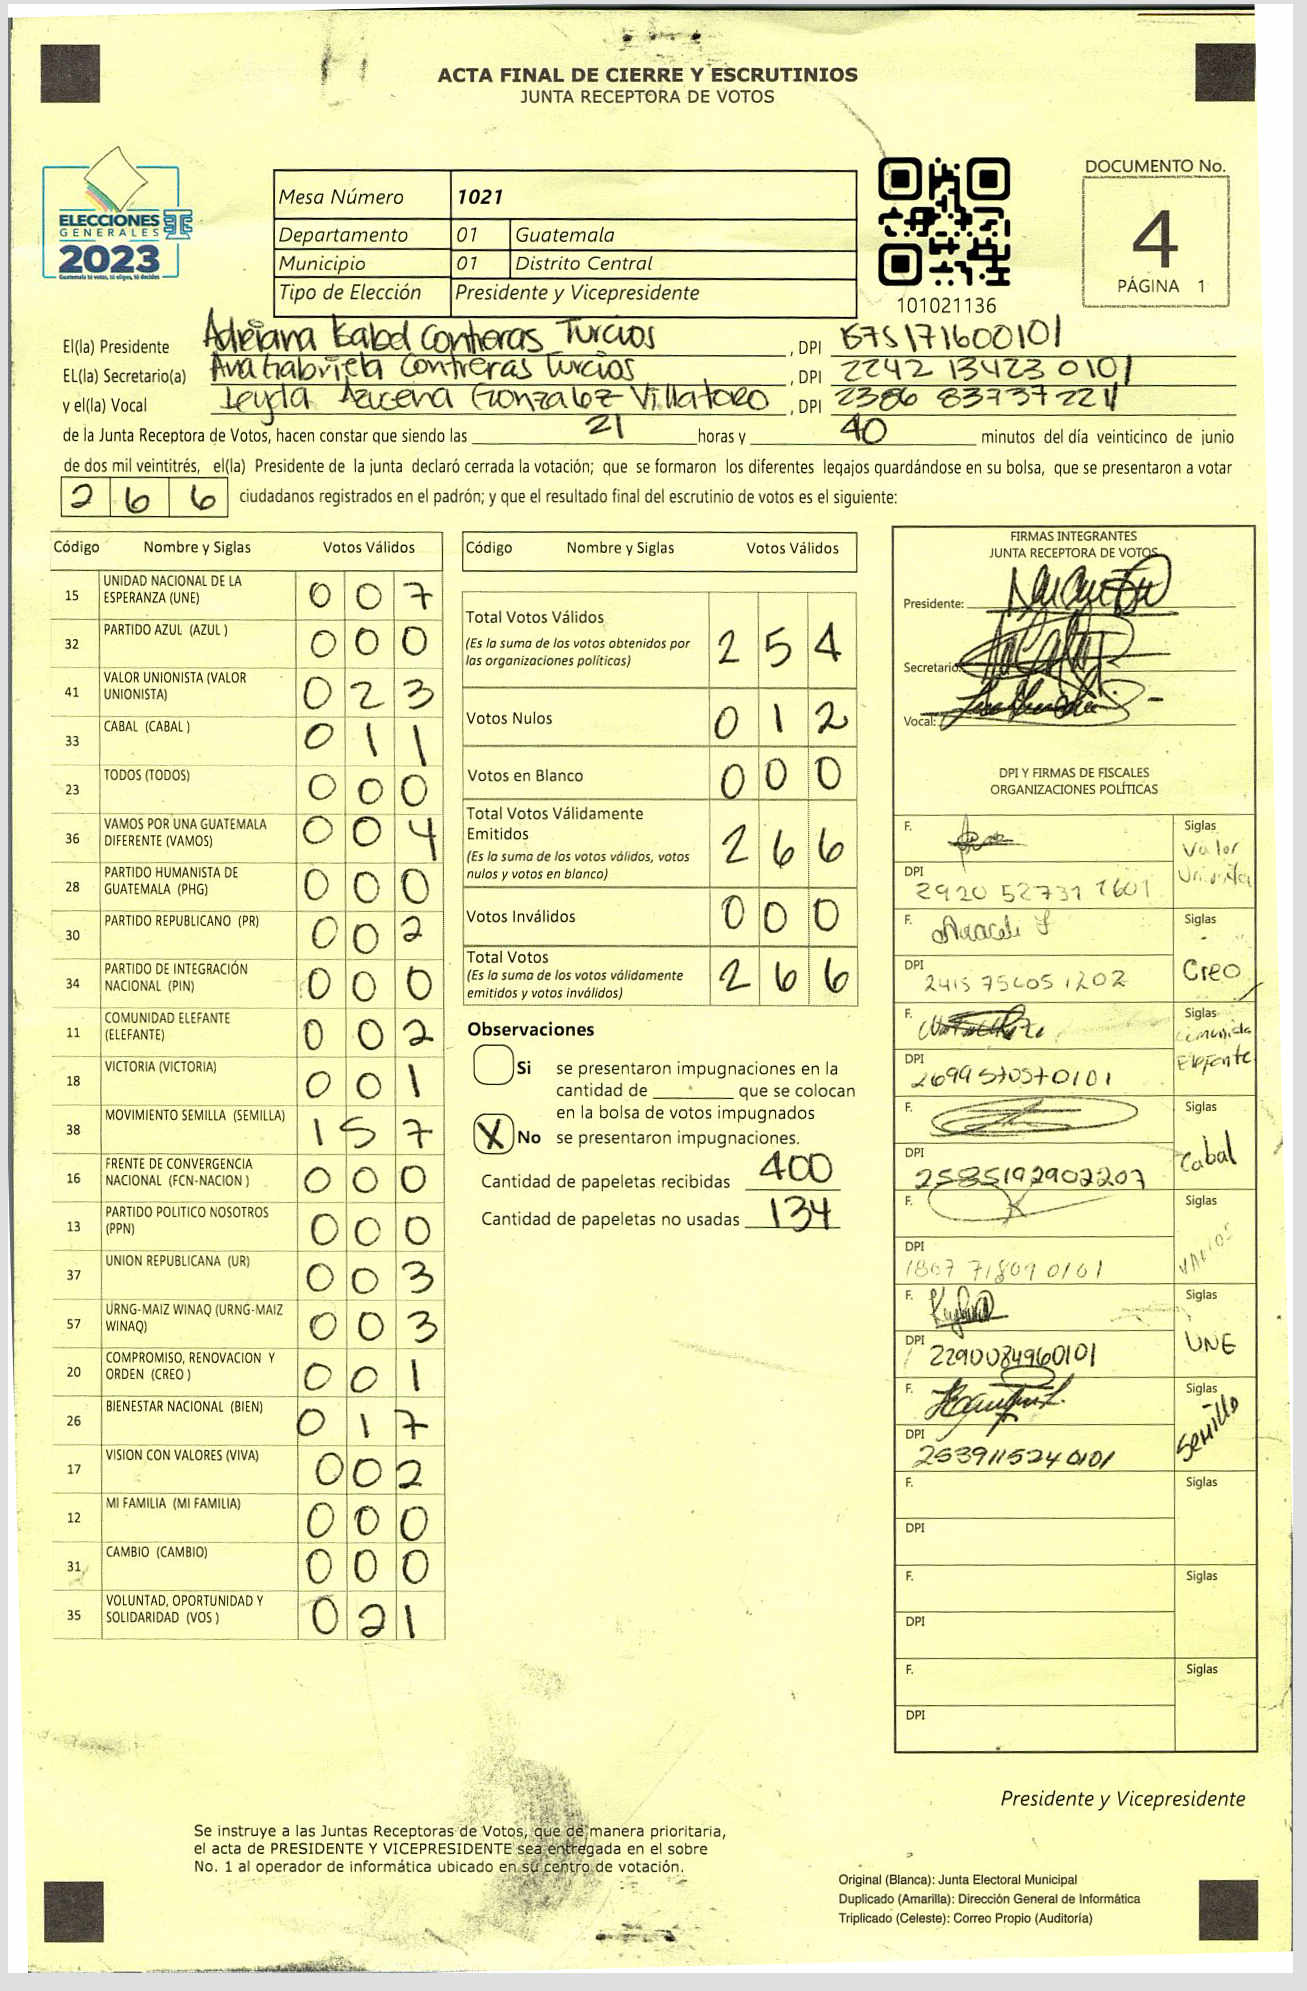 ACTA FINAL DE CIERRE Y ESCRUTINIOS
JUNTA RECEPTORA DE VOTOS
ELECCIONES
GENERALES
2023
Mesa Número 1021
Departamento 01 Guatemala
Municipio 01 Distrito Central
Tipo de Elección Presidente y Vicepresidente
101021136
DOCUMENTO No.
4
PÁGINA 1
El(la) Presidente Adriana Isabel Contreras Turcios, DPI
EL(la) Secretario(a) Ana Gabriela Contreras Turcios, DPI 2242 13423 0101
y el(la) Vocal Leyda Azucena Gonzalez Villatoro, DPI 2386 83737 2211
de la Junta Receptora de Votos, hacen constar que siendo las 21 horas y 40 minutos del día veinticinco de junio
de dos mil veintitrés, el(la) Presidente de la junta declaró cerrada la votación; que se formaron los diferentes legajos guardándose en su bolsa, que se presentaron a votar
266 ciudadanos registrados en el padrón; y que el resultado final del escrutinio de votos es el siguiente:
Código Nombre y Siglas Votos Válidos
15 UNIDAD NACIONAL DE LA ESPERANZA (UNE) 007
32 PARTIDO AZUL (AZUL ) 000
41 VALOR UNIONISTA (VALOR UNIONISTA) 023
33 CABAL (CABAL ) 011
23 TODOS (TODOS) 000
36 VAMOS POR UNA GUATEMALA DIFERENTE (VAMOS) 004
28 PARTIDO HUMANISTA DE GUATEMALA (PHG) 000
30 PARTIDO REPUBLICANO (PR) 002
34 PARTIDO DE INTEGRACIÓN NACIONAL (PIN) 000
11 COMUNIDAD ELEFANTE (ELEFANTE) 002
18 VICTORIA (VICTORIA) 001
38 MOVIMIENTO SEMILLA (SEMILLA) 157
16 FRENTE DE CONVERGENCIA NACIONAL (FCN-NACION ) 000
13 PARTIDO POLITICO NOSOTROS (PPN) 000
37 UNION REPUBLICANA (UR) 003
57 URNG-MAIZ WINAQ (URNG-MAIZ WINAQ) 003
20 COMPROMISO, RENOVACION Y ORDEN (CREO ) 001
26 BIENESTAR NACIONAL (BIEN) 017
17 VISION CON VALORES (VIVA) 002
12 MI FAMILIA (MI FAMILIA) 000
31 CAMBIO (CAMBIO) 000
35 VOLUNTAD, OPORTUNIDAD Y SOLIDARIDAD (VOS ) 021
Código Nombre y Siglas Votos Válidos
Total Votos Válidos 254
(Es la suma de los votos obtenidos por
las organizaciones políticas)
Votos Nulos 012
Votos en Blanco 000
Total Votos Válidamente
Emitidos 266
(Es la suma de los votos válidos, votos
nulos y votos en blanco)
Votos Inválidos 000
Total Votos 266
(Es la suma de los votos válidamente
emitidos y votos inválidos)
Observaciones
Si se presentaron impugnaciones en la
cantidad de ________ que se colocan
en la bolsa de votos impugnados
X No se presentaron impugnaciones.
Cantidad de papeletas recibidas 400
Cantidad de papeletas no usadas 134
FIRMAS INTEGRANTES
JUNTA RECEPTORA DE VOTOS
Presidente:
Secretario:
Vocal:
DPI Y FIRMAS DE FISCALES
ORGANIZACIONES POLÍTICAS
F. Siglas
Valor
Unionista
DPI 2920 52731 1601
F. Araceli Siglas
Creo
DPI
F. Siglas
Comunida
Elefante
DPI
F. Siglas
Cabal
DPI 2585192902207
F. Siglas
VAMOS
DPI 1807 71809 0101
F. Siglas
UNE
DPI 2290084960101
F. Siglas
Semilla
DPI 2539115240101
F. Siglas
DPI
F. Siglas
DPI
F. Siglas
DPI
Presidente y Vicepresidente
Se instruye a las Juntas Receptoras de Votos, que de manera prioritaria,
el acta de PRESIDENTE Y VICEPRESIDENTE sea entregada en el sobre
No. 1 al operador de informática ubicado en su centro de votación.
Original (Blanca): Junta Electoral Municipal
Duplicado (Amarilla): Dirección General de Informática
Triplicado (Celeste): Correo Propio (Auditoría)